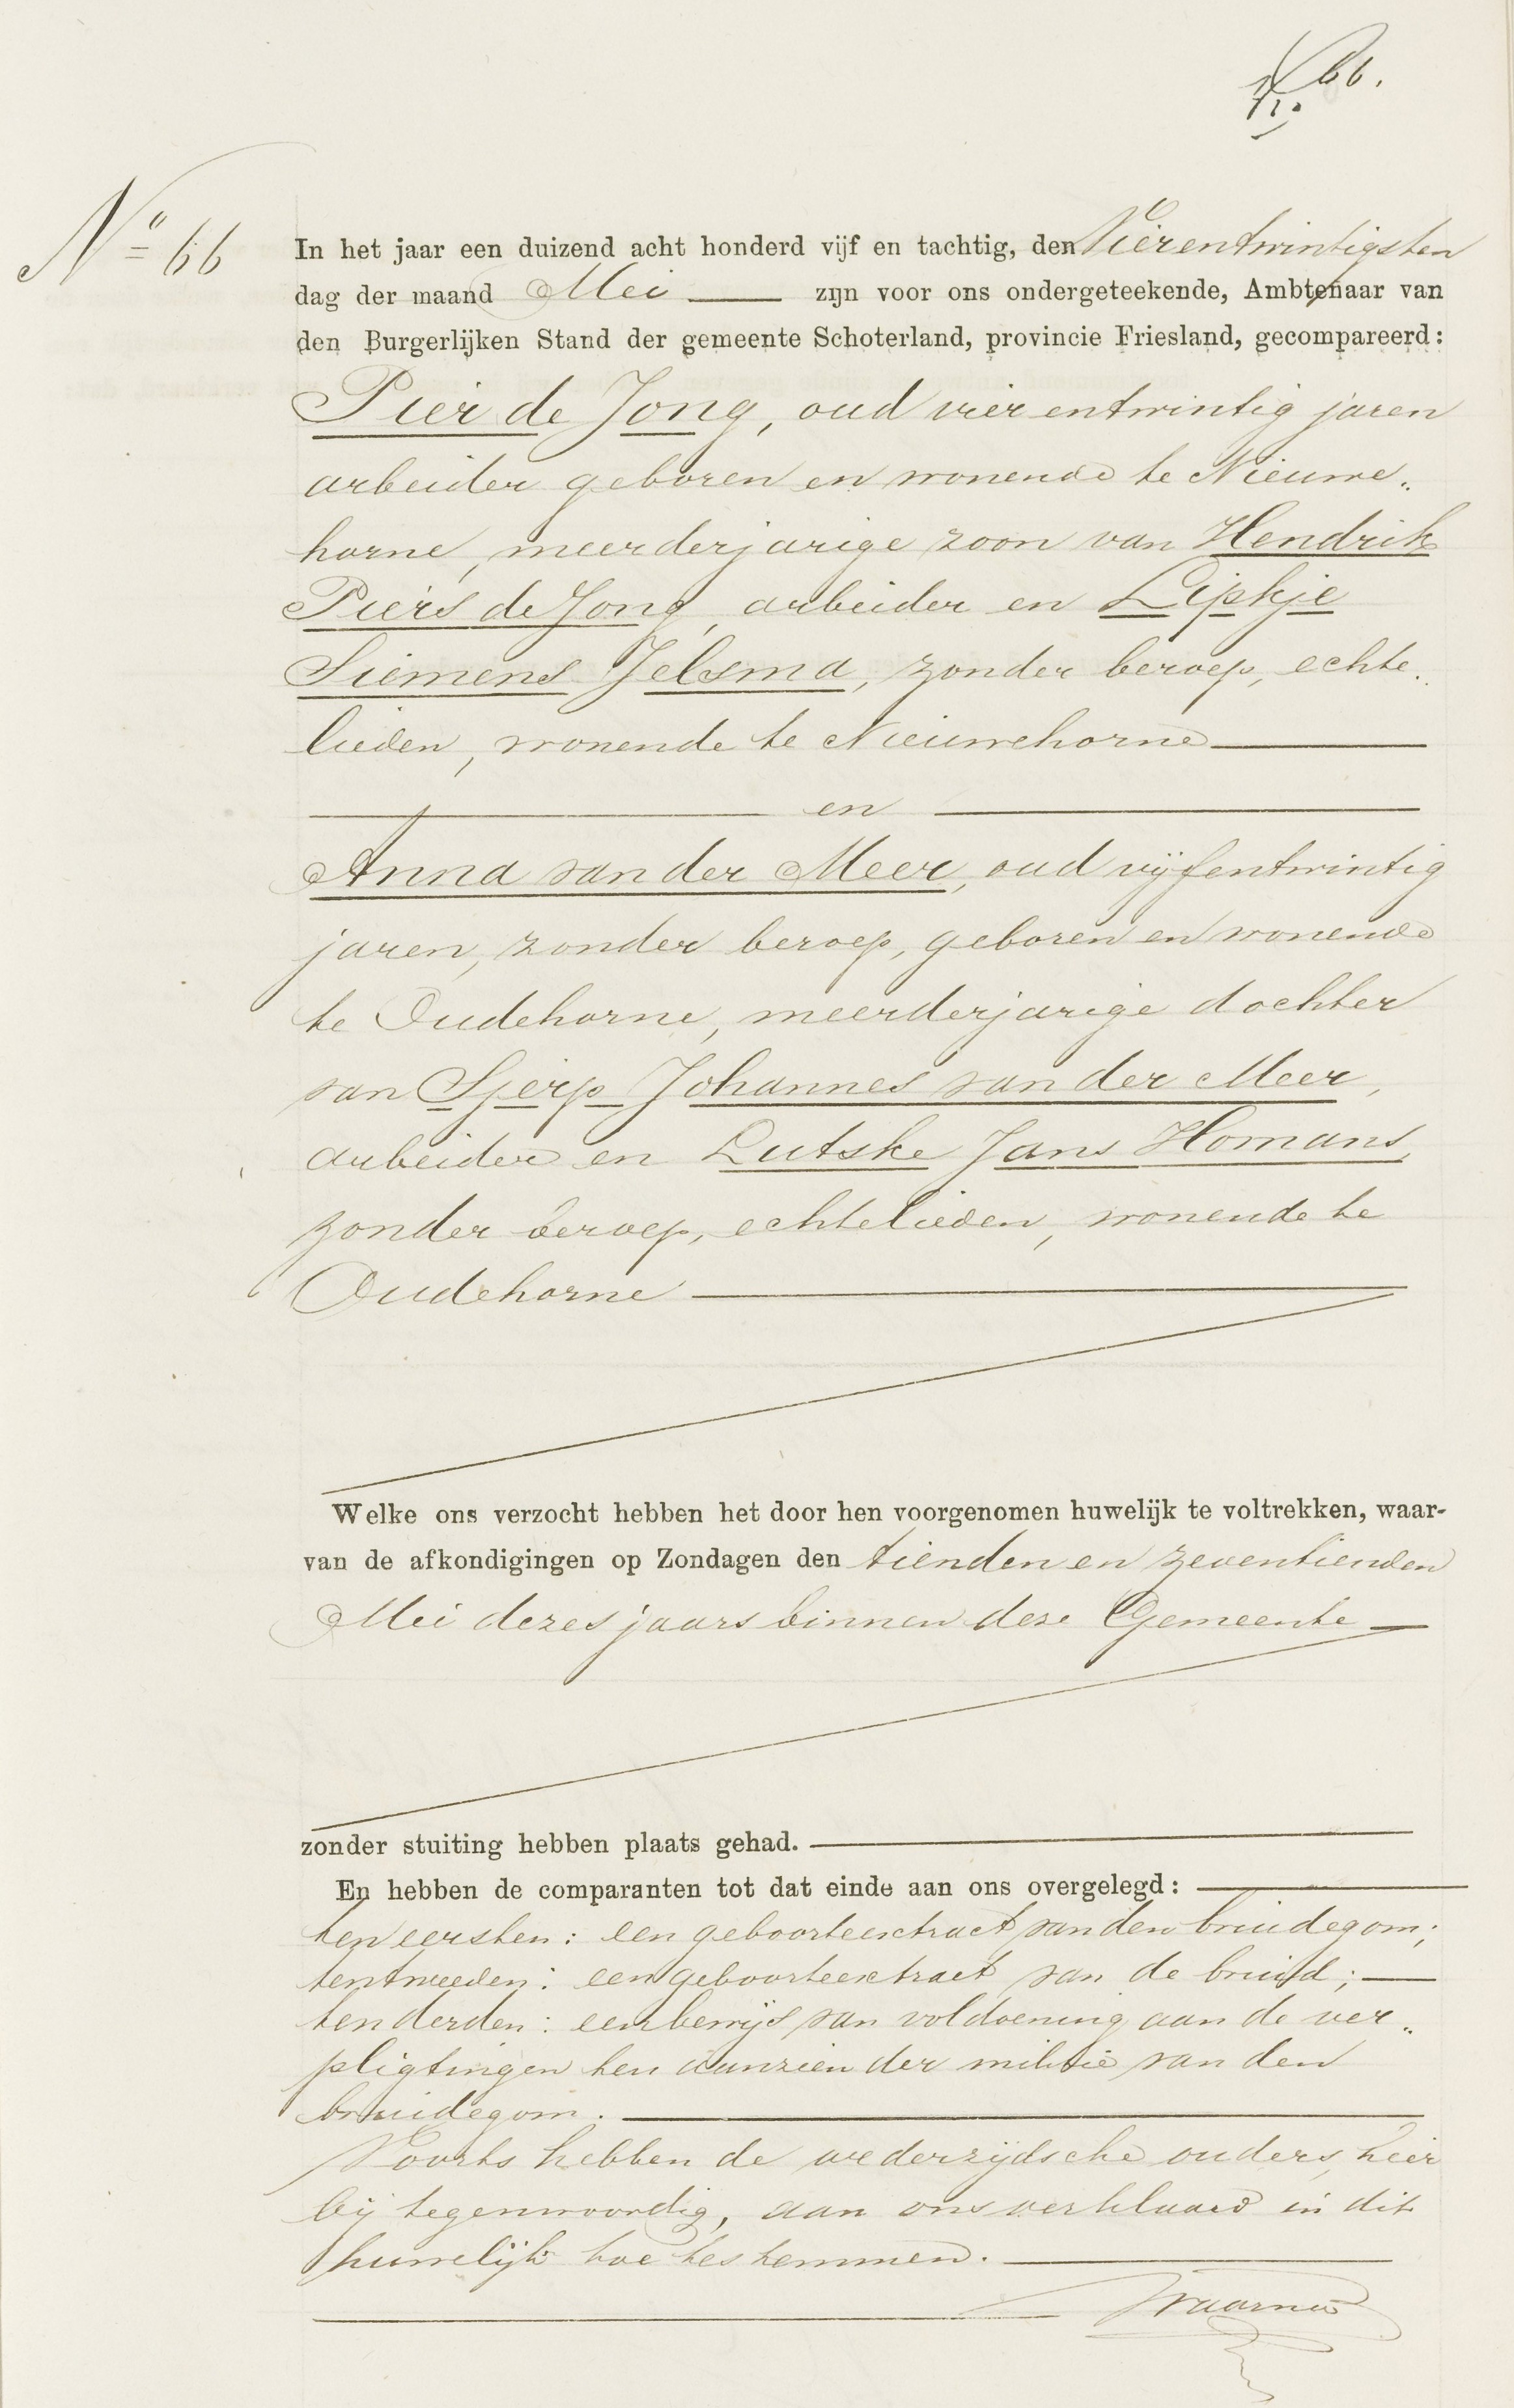 66.
No 66
In het jaar een duizend acht honderd vijf en tachtig, den Vierentwintigsten
dag der maand Mei zijn voor ons ondergeteekende, Ambtenaar van
den Burgerlijken Stand der gemeente Schoterland, provincie Friesland, gecompareerd:
Pier de Jong, oud vier entwintig jaren
arbeider geboren en wonende te Nieuwe„
horne, meerderjarige zoon van Hendrik
Piers de Jong, arbeider en Lipkje
Siemens Jelsma, zonder beroep, echte„
lieden, wonende te Nieuwehorne
en
Anna van der Meer, oud vijfentwintig
jaren, zonder beroep, geboren en wonende
te Oudehorne, meerderjarige dochter
van Sjerp Johannes van der Meer,
arbeider en Lutske Jans Homans,
zonder beroep, echtelieden, wonende te
Oudehorne
Welke ons verzocht hebben het door hen voorgenomen huwelijk te voltrekken, waar-
van de afkondigingen op Zondagen den tienden en zeventienden
Mei dezes jaars binnen deze Gemeente
zonder stuiting hebben plaats gehad.
En hebben de comparanten tot dat einde aan ons overgelegd:
ten eersten: een geboorteextract van den bruidegom;
ten tweeden: een geboorteextract van de bruid;
ten derden: een bewijs van voldoening aan de ver„
pligtingen ten aanzien der militie van den
bruidegom.
Voorts hebben de wederzijdsche ouders, hier
bij tegenwoordig, aan ons verklaard in dit
huwelijk toe te stemmen.
Waarna